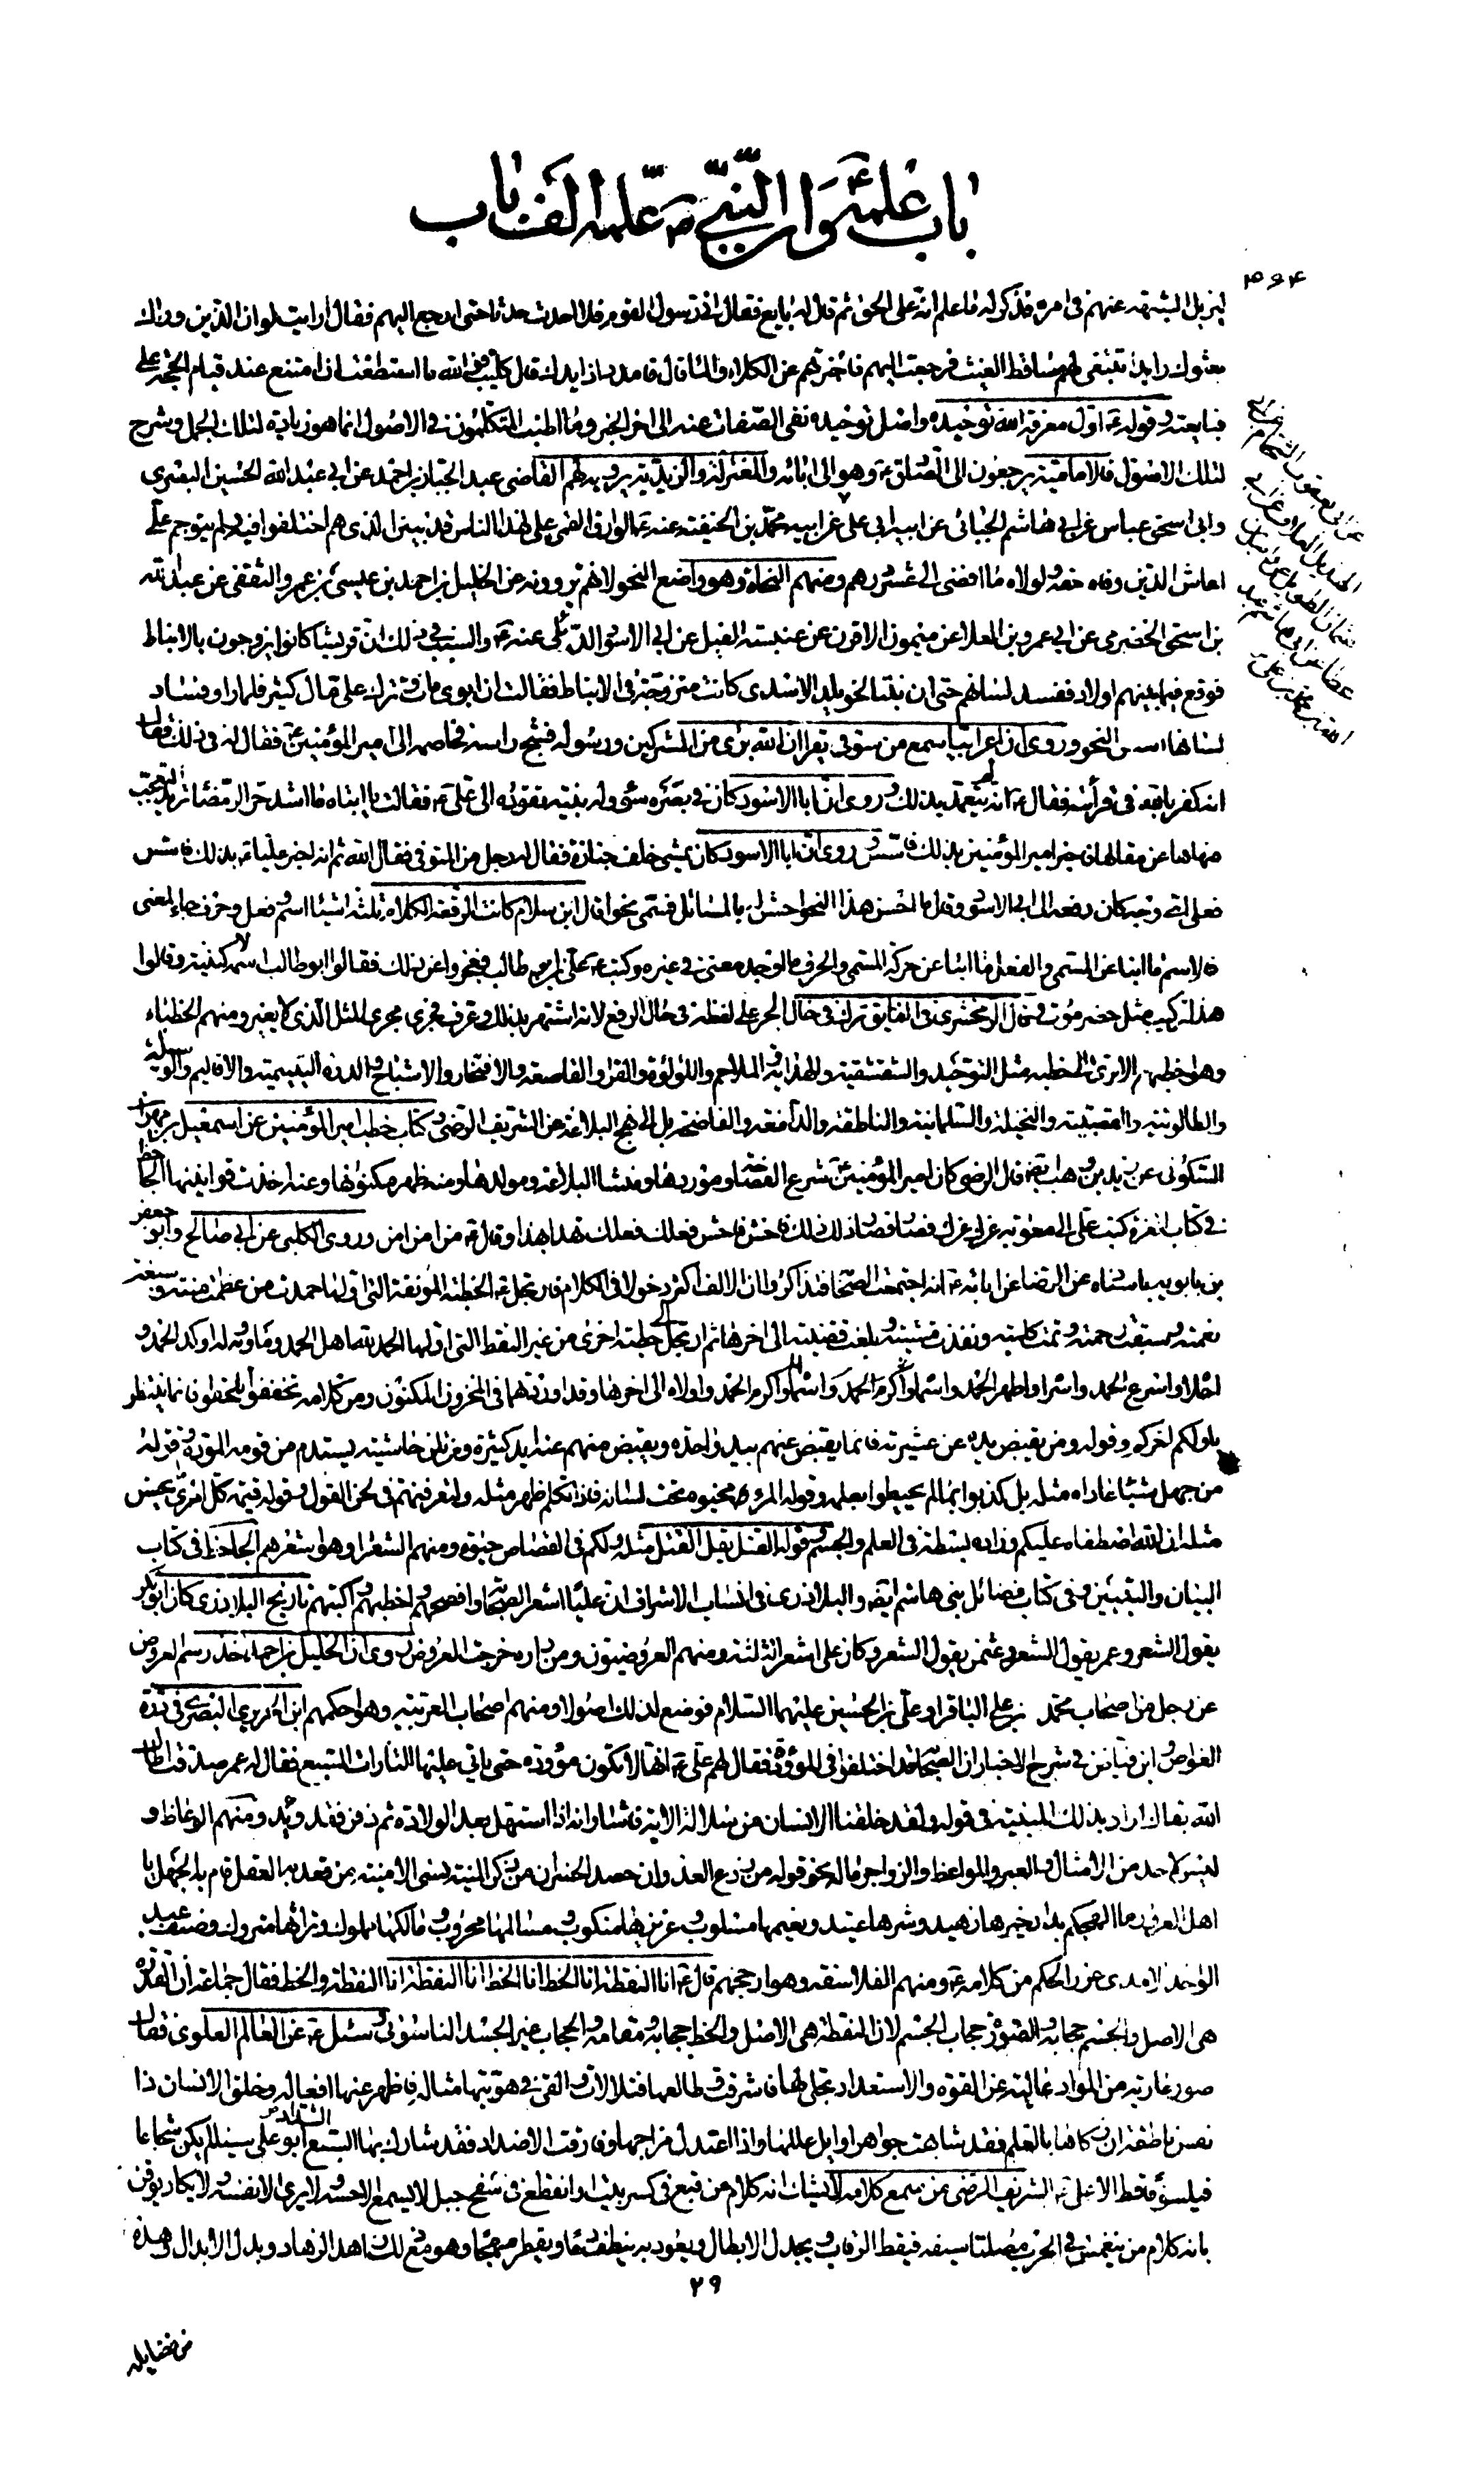 باب علمه وان النبي ص علمه الف باب
ليزيل الشبهة عنهم في امره فذكر له ما علم انه على الحق ثم قال له بايع فقال اني رسول القوم فلا احدث حدثا حتى ارجع اليهم فقال ارايت لو ان الذين وراك
بعثوك رايدا تبتغي لهم مساقط الغيث فرجعت اليهم فاخبرتهم عن الكلاء والماء قال فامدد اذا يدك قال كليب فوالله ما استطعت ان امتنع عند قيام الحجة علي
فبايعته وقوله ع اول معرفة الله توحيده واصل توحيده نفي الصفات عنه الى اخر الخبر وما اطنب المتكلمون في الاصول انما هو زيادة لتلك الجمل وشرح
لتلك الاصول فالامامية يرجعون الى الصادق ع وهو الى ابائه والمعتزلة والزيدية يرويه لهم القاضي عبد الجبار بن احمد عن ابي عبد الله الحسين البصري
وابي اسحق عباس عن ابي هاشم الجبائي عن ابيه ابي علي
عن ابي يعقوب الشحام عن ابي
الهذيل العلاف عن ابي
عثمان الطويل عن واصل بن
عطا عن ابي هاشم عبد
الله بن محمد بن علي
عن ابيه محمد بن الحنيفة عنه ع
ومنهم النحاة وهو واضع النحو لانهم يروونه عن الخليل بن احمد بن عيسى بن عمرو الثقفي عن عبد الله
بن اسحق الحضرمي عن ابي عمرو بن العلا عن ميمون الاقرن عن عنبسة الفيل عن ابي الاسود الدئلي عنه ع والسبب في ذلك ان قريشا كانوا يزوجون بالانباط
فوقع فيما بينهم اولاد ففسد لسانهم حتى ان بنتا لخويلد الاسدي كانت متزوجة في الانباط فقالت ان ابوي مات وترك علي مال كثير فلما راوا فساد
لسانها اسس النحو وروي ان اعرابيا سمع من سوقي يقرا ان الله بري من المشركين ورسوله فشج راسه فخاصمه الى امير المؤمنين ع فقال له في ذلك فقال
انه كفر بالله في قرائته فقال ع انه لم يتعمد بذلك وروي ان ابا الاسود كان في بصره سوء وله بنية تقوده الى علي ع فقالت يا ابتاه ما اشد حر الرمضاء تريد التعجب
فنهاها عن مقالها فاخبر امير المؤمنين بذلك فاسس وروي ان ابا الاسود كان يمشي خلف جنازة فقال له رجل من المتوفي فقال الله ثم انه اخبر عليا ع بذلك فاسس
فعلى اي وجه كان دفعه الى ابي الاسود وقال ما احسن هذا النحو احش له بالمسائل فسمي نحوا قال ابن سلام كانت الرقعة الكلام ثلثة اشياء اسم وفعل وحرف جاء لمعنى
فالاسم ما انبا عن المسمى والفعل ما انبا عن حركة المسمى والحرف ما اوجد معنى في غيره وكتب ع علي بن ابو طالب فعجزوا عن ذلك فقالوا ابو طالب اسمه لا كنيته وقالوا
هذا تركيب مثل حضرموت وقال الزمخشري في الفايق ترك في حال الجر على لفظه في حال الرفع لانه اشتهر بذلك وعرف فجرى مجرى المثل الذي لا يغير ومنهم الخطباء
وهو اخطبهم الا ترى الى خطبه مثل التوحيد والشقشقية والهداية والملاحم واللؤلؤة والغراء والقاصعة والافتخار والاشباح والدرة اليتيمة والاقاليم والوسيلة
والطالوتية والقصبية والنخيلة والسلمانية والناطقة والدامغة والفاضحة بل الى نهج البلاغة عن الشريف الرضي وكتاب خطب امير المؤمنين عن اسمعيل بن مهران
السكوني عن زيد بن وهب ايضا قال الرضي كان امير المؤمنين ع مشرع الفصاحة وموردها ومنشا البلاغة ومولدها ومنه ظهر مكنونها وعنه اخذت قوانينها الجاحظ
في كتاب الغرة كتب علي الى معوية غرك عزك فصار قصار ذلك ذلك فاخش فاحش فعلك فعلك تهدا بهذا وقال ع من امن امن وروى الكلبي عن ابي صالح وابو جعفر
بن بابويه باسناده عن الرضا عن ابائه ع انه اجتمعت الصحابة فتذاكروا ان الالف اكثر دخولا في الكلام فارتجل ع الخطبة المونقة التي اولها حمدت من عظمت منته وسبغت
نعمته وسبقت رحمته وتمت كلمته ونفذت مشيته وبلغت قضيته الى اخرها ثم ارتجل الى خطبة اخرى من غير النقط التي اولها الحمد لله اهل الحمد وماواه وله اوكد الحمد و
احلاه واسرع الحمد واسراه واطهر الحمد واسماه واكرم الحمد واولاه الى اخرها وقد اوردتهما في المخزون المكنون ومن كلامه تخففوا تلحقوا فانما ينتظر
باولكم اخركم وقوله ومن يقبض يده عن عشيرته فانما يقبض عنهم بيد واحدة ويقبض منهم عنه ايد كثيرة ومن تلن حاشيته يستدم من قومه المودة وقوله
من جهل شيئا عاداه مثله بل كذبوا بما لم يحيطوا بعلمه وقوله المرء مخبوء تحت لسانه فاذا تكلم ظهر مثله ولتعرفنهم في لحن القول وقوله قيمة كل امرئ ما يحسن
مثله ان الله اصطفاه عليكم وزاده بسطة في العلم والجسم وقوله القتل يقل القتل مثله ولكم في القصاص حيوة ومنهم الشعراء وهو اشعرهم الجاحظ في كتاب
البيان والتبيين وفي كتاب فضائل بني هاشم ايضا والبلاذري في انساب الاشراف ان عليا اشعر الصحابة وافصحهم واخطبهم واكتبهم تاريخ البلاذري كان ابو بكر
يقول الشعر وعمر يقول الشعر وعثمن يقول الشعر وكان علي اشعر الثلثة ومنهم العروضيون ومن داره خرجت العروض روي ان الخليل بن احمد اخذ رسم العروض
عن رجل من اصحاب محمد بن علي الباقر او علي بن الحسين عليهما السلام فوضع لذلك اصولا ومنهم اصحاب العربية وهو احكمهم ابن الحريري البصري في درة
الغواص وابن فياض في شرح الاخبار ان الصحابة قد اختلفوا في الموؤدة فقال لهم علي ع انها لا تكون موؤدة حتى ياتي عليها التارات السبع فقال له عمر صدقت اطال
الله بقاك اراد بذلك المبينة في قوله ولقد خلقنا الانسان من سلالة الاية فاشار انه اذا استهل بعد الولادة ثم دفن فقد وئد ومنهم الوعاظ و
ليس لاحد من الامثال والعبر والمواعظ والزواجر ما له نحو قوله من زرع العدوان حصد الخسران من ذكر المنية نسي الامنية من قعد به العقل قام به الجهل يا
اهل الغرور ما الهجكم بدار خيرها زهيد وشرها عتيد ونعيمها مسلوب وعزيزها منكوب ومسالمها محروب ومالكها مملوك وتراثها متروك وصنف عبد
الواحد الامدي غرر الحكم من كلامه ع ومنهم الفلاسفة وهو ارجحهم قال ع انا النقطة انا الخط انا الخط انا النقطة انا النقطة والخط فقال جماعة ان القدرة
هي الاصل والجسم حجابه والصورة حجاب الجسم لان النقطة هي الاصل والخط حجابه ومقامه والحجاب غير الجسد الناسوتي وسئل ع عن العالم العلوي فقال
صور عارية من المواد عالية عن القوة والاستعداد تجلى لها فاشرقت وطالعها فتلالات والقى في هويتها مثاله فاظهر عنها افعاله وخلق الانسان ذا
نفس ناطقة ان زكاها بالعلم فقد شابهت جواهر اوايل عللها واذا اعتدل مزاجها وفارقت الاضداد فقد شارك بها السبع الشداد ابو علي سينا لم يكن شجاعا
فيلسوفا قط الا علي ع الشريف الرضي من سمع كلامه لا يشك انه كلام من قبع في كسر بيت او انقطع في سفح جبل لا يسمع الا حسه ولا يرى الا نفسه ولا يكاد يوقن
بانه كلام من ينغمس في الحرب مصلتا سيفه فيقط الرقاب ويجدل الابطال ويعود به ينطف دما ويقطر مهجا وهو مع ذلك زاهد الزهاد وبدل الابدال وهذه
٢٩
من فضايله